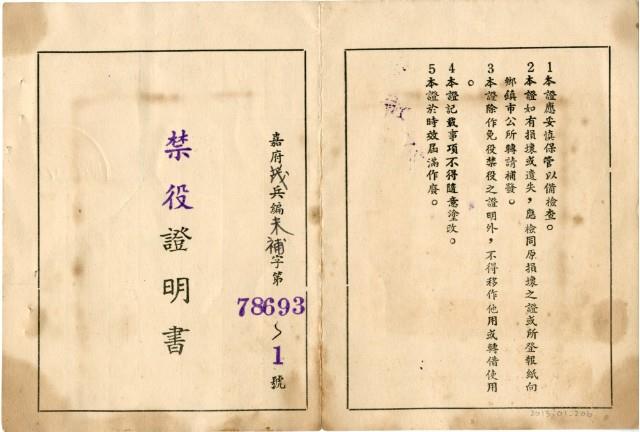 1本證應妥慎保管以備檢查。
2本證如有損壞或遺失，應檢同原損壞之證或所登報紙向
鄉鎮市公所轉請補發。
3本證除作免役禁役之證明外，不得移作他用或轉借使用
。
4本證記載事項不得隨意塗改。
5本證於時效屆滿作廢。
嘉府兵編未補字第78693~1號
禁役證明書
2013.01.206